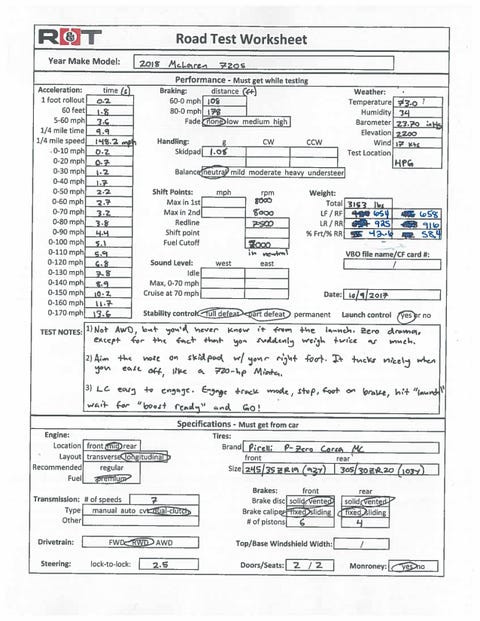 R&T Road Test Worksheet
Year Make Model: 2018 McLaren 720S
Performance - Must get while testing
Acceleration: time (s)
1 foot rollout 0.2
60 feet 1.8
5-60 mph 3.6
1/4 mile time 9.9
1/4 mile speed 148.2 mph
0-10 mph 0.2
0-20 mph 0.7
0-30 mph 1.2
0-40 mph 1.7
0-50 mph 2.2
0-60 mph 2.7
0-70 mph 3.2
0-80 mph 3.8
0-90 mph 4.4
0-100 mph 5.1
0-110 mph 5.9
0-120 mph 6.8
0-130 mph 7.8
0-140 mph 8.9
0-150 mph 10.2
0-160 mph 11.7
0-170 mph 13.6
Braking: distance (ft)
60-0 mph 108
80-0 mph 178
Fade none low medium high
Handling: g CW CCW
Skidpad 1.05
Balance neutral mild moderate heavy understeer
Weather:
Temperature 73.0 °
Humidity 34
Barometer 27.70 inHg
Elevation 2200
Wind 17 kts
Test Location HPG
Shift Points: mph rpm
Max in 1st 8000
Max in 2nd 8000
Redline 7500
Shift point
Fuel Cutoff 8000
in neutral
Weight:
Total 3153 lbs
LF / RF 654 658
LR / RR 925 916
% Frt/% RR 41.6 58.4
VBO file name/CF card #:
/
Sound Level: west east
Idle /
Max, 0-70 mph /
Cruise at 70 mph /
Date: 10/9/2017
Stability Control: full defeat part defeat permanent Launch control yes or no
TEST NOTES: 1) Not AWD, but you'd never know it from the launch. Zero drama,
except for the fact that you suddenly weigh twice as much.
2) Aim the nose on skidpad w/ your right foot. It tucks nicely when
you ease off, like a 720-hp Miata.
3) LC easy to engage. Engage track mode, stop, foot on brake, hit "launch"
wait for "boost ready" and GO!
Specifications - Must get from car
Engine:
Location front mid rear
Layout transverse longitudinal
Recommended regular
Fuel premium
Tires:
Brand Pirelli P-Zero Corsa MC
front rear
Size 245/35ZR19 (93Y) 305/30ZR20 (103Y)
Transmission: # of speeds 7
Type manual auto cvt dual-clutch
Other
Brakes: front rear
Brake disc solid vented solid vented
Brake caliper fixed sliding fixed sliding
# of pistons 6 4
Drivetrain: FWD RWD AWD
Top/Base Windshield Width: /
Steering: lock-to-lock: 2.5
Doors/Seats: 2 / 2
Monroney: yes no